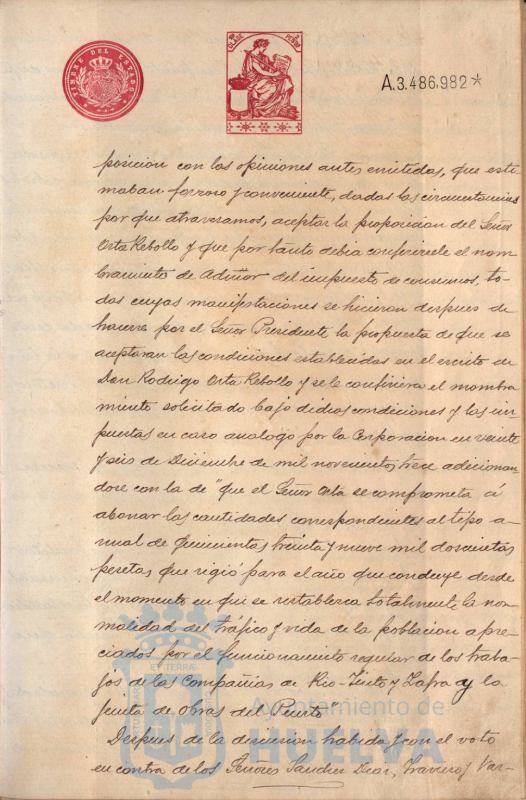 TIMBRE DEL ESTADO
A.3.486,982*
posición con las opiniones antes emitidas, que esti-
maban forzoso y conveniente, dadas las circunstancias
por que atravesamos, aceptar la proposición del Señor
Orta Rebollo y que por tanto debia conferirsele el nom-
bramiento de Admor del impuesto de consumos, to-
das cuyas manifestaciones se hicieron despues de
hacerse por el Señor Presidente la propuesta de que se
aceptaran las condiciones establecidas en el escrito de
Don Rodrigo Orta Rebollo y se le confiriera el nombra
miento solicitado bajo dichas condiciones y las im
puestas en caso analogo por la Corporacion en veinte
y seis de Diciembre de mil novecientos trece adicionan
dose con la de "que el Señor Orta se comprometa á
abonar las cantidades correspondientes al tipo a-
nual de quinientas treinta y nueve mil doscientas
pesetas, que rigió para el año que concluye desde
el momento en que se restablezca totalmente la nor
malidad del tráfico y vida de la poblacion apre-
ciados por el funcionamiento regular de los traba-
jos de las Compañias de Rio-Tinto y Zafra y la
Junta de Obras del Puerto"
Despues de la discusion habida y con el voto
en contra de los Señores Sanchez Diaz, Traviero y Var-
Ayuntamiento de
HUELVA